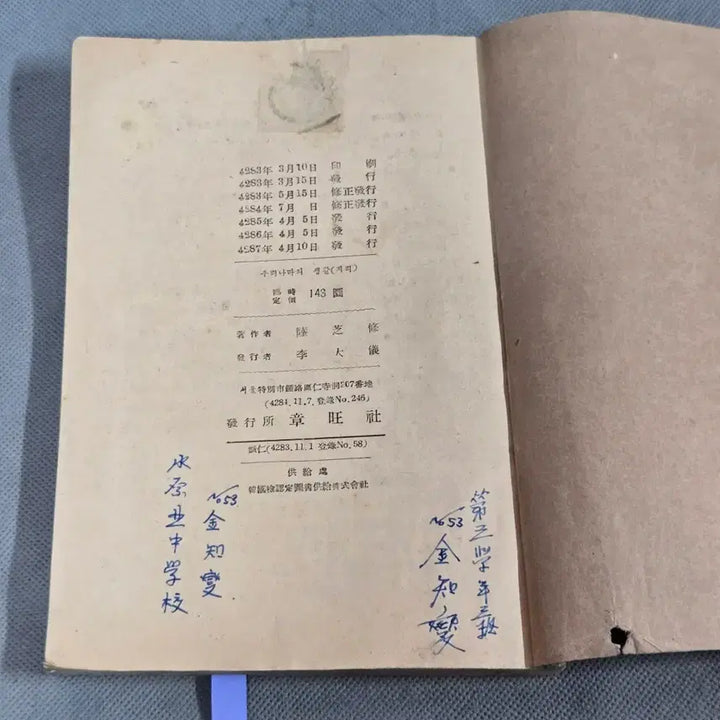 4283年 3月10日 印 刷
4283年 3月15日 發 行
4283年 5月15日 修正發行
4284年 7月 日 修正發行
4285年 4月 5日 發 行
4286年 4月 5日 發 行
4287年 4月10日 發 行
우리나라의 생활(지리)
臨時
定價 143 圜
著作者 陸 芝 修
發行者 李 大 儀
서울特別市鍾路區仁寺洞207番地
(4284.11.7.登錄No.246)
發行所 章 旺 社
(4283.11.1 登錄No.58)
供 給 處
韓國檢認定圖書供給株式會社
水原北中學校
No53
金知變
第三學年三班
No53
金知變